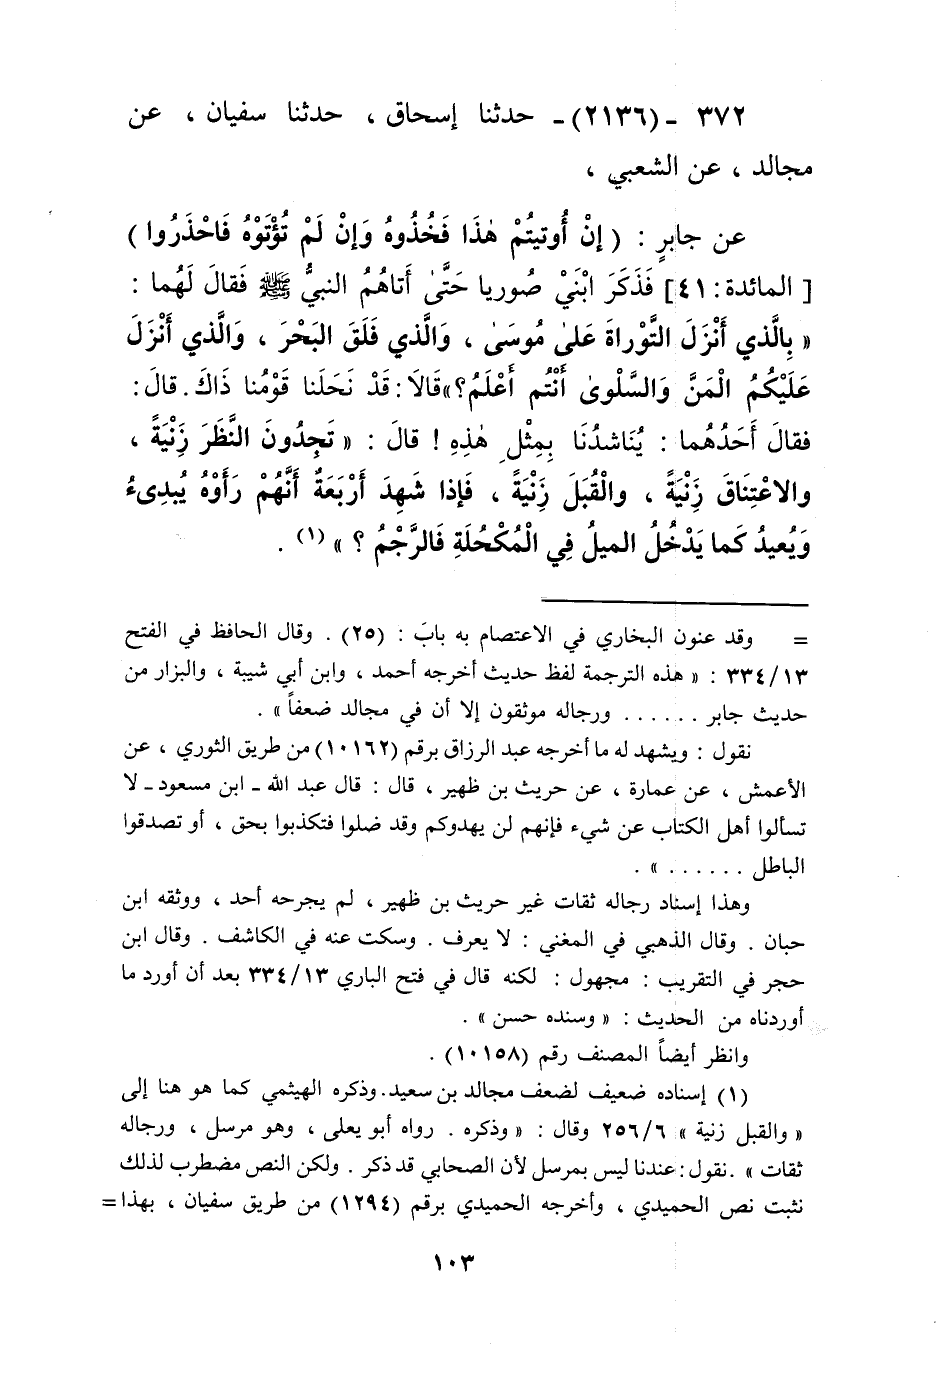 ٣٧٢ - (٢١٣٦) - حدثنا إسحاق ، حدثنا سفيان ، عن
مجالد ، عن الشعبي ،
عن جابرٍ : ( إنْ أُوتيتُمْ هٰذَا فَخُذُوهُ وَإنْ لَمْ تُؤْتَوْهُ فَاحْذَرُوا )
[ المائدة : ٤١] فَذَكَرَ ابْنَيْ صُوريا حَتَّىٰ أَتاهُمُ النبيُّ ﷺ فَقالَ لَهُما :
« بِالَّذي أَنْزَلَ التَّوْراةَ عَلىٰ مُوسَىٰ ، وَالَّذي فَلَقَ البَحْرَ ، وَالَّذي أَنْزَلَ
عَلَيْكُمُ الْمَنَّ وَالسَّلْوىٰ أَنْتُم أَعْلَمُ؟»قَالَا : قَدْ نَحَلَنا قَوْمُنا ذَاكَ . قالَ :
فقالَ أَحَدُهُما : يُنَاشدُنَا بِمِثْلِ هٰذِهِ ! قالَ : « تَجِدُونَ النَّظَرَ زِنْيَةً ،
والاعْتِنَاقَ زِنْيَةً ، والْقُبَلَ زِنْيَةً ، فَإذا شَهِدَ أَرْبَعَةٌ أَنَّهُمْ رَأَوْهُ يُبدِىءُ
وَيُعيدُ كَما يَدْخُلُ الميلُ فِي الْمُكْحُلَةِ فَالرَّجْمُ ؟ » (١) .
= وقد عنون البخاري في الاعتصام به بابَ : (٢٥) . وقال الحافظ في الفتح
٣٣٤/١٣ : « هذه الترجمة لفظ حديث أخرجه أحمد ، وابن أبي شيبة ، والبزار من
حديث جابر . . . . . . ورجاله موثقون إلا أن في مجالد ضعفاً » .
نقول : ويشهد له ما أخرجه عبد الرزاق برقم (١٠١٦٢) من طريق الثوري ، عن
الأعمش ، عن عمارة ، عن حريث بن ظهير ، قال : قال عبد الله - ابن مسعود - لا
تسألوا أهل الكتاب عن شيء فإنهم لن يهدوكم وقد ضلوا فتكذبوا بحق ، أو تصدقوا
الباطل . . . . . . » .
وهذا إسناد رجاله ثقات غير حريث بن ظهير ، لم يجرحه أحد ، ووثقه ابن
حبان . وقال الذهبي في المغني : لا يعرف . وسكت عنه في الكاشف . وقال ابن
حجر في التقريب : مجهول : لكنه قال في فتح الباري ٣٣٤/١٣ بعد أن أورد ما
أوردناه من الحديث : « وسنده حسن » .
وانظر أيضاً المصنف رقم (١٠١٥٨) .
(١) إسناده ضعيف لضعف مجالد بن سعيد . وذكره الهيثمي كما هو هنا إلى
« والقبل زنية » ٢٥٦/٦ وقال : « وذكره . رواه أبو يعلى ، وهو مرسل ، ورجاله
ثقات » . نقول : عندنا ليس بمرسل لأن الصحابي قد ذكر . ولكن النص مضطرب لذلك
نثبت نص الحميدي ، وأخرجه الحميدي برقم (١٢٩٤) من طريق سفيان ، بهذا =
١٠٣